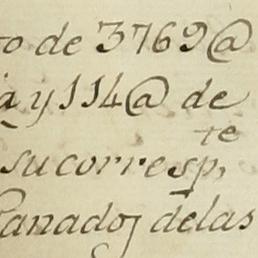 to de 3769@
a y 114@ de
su corresp,te
Ganados delas